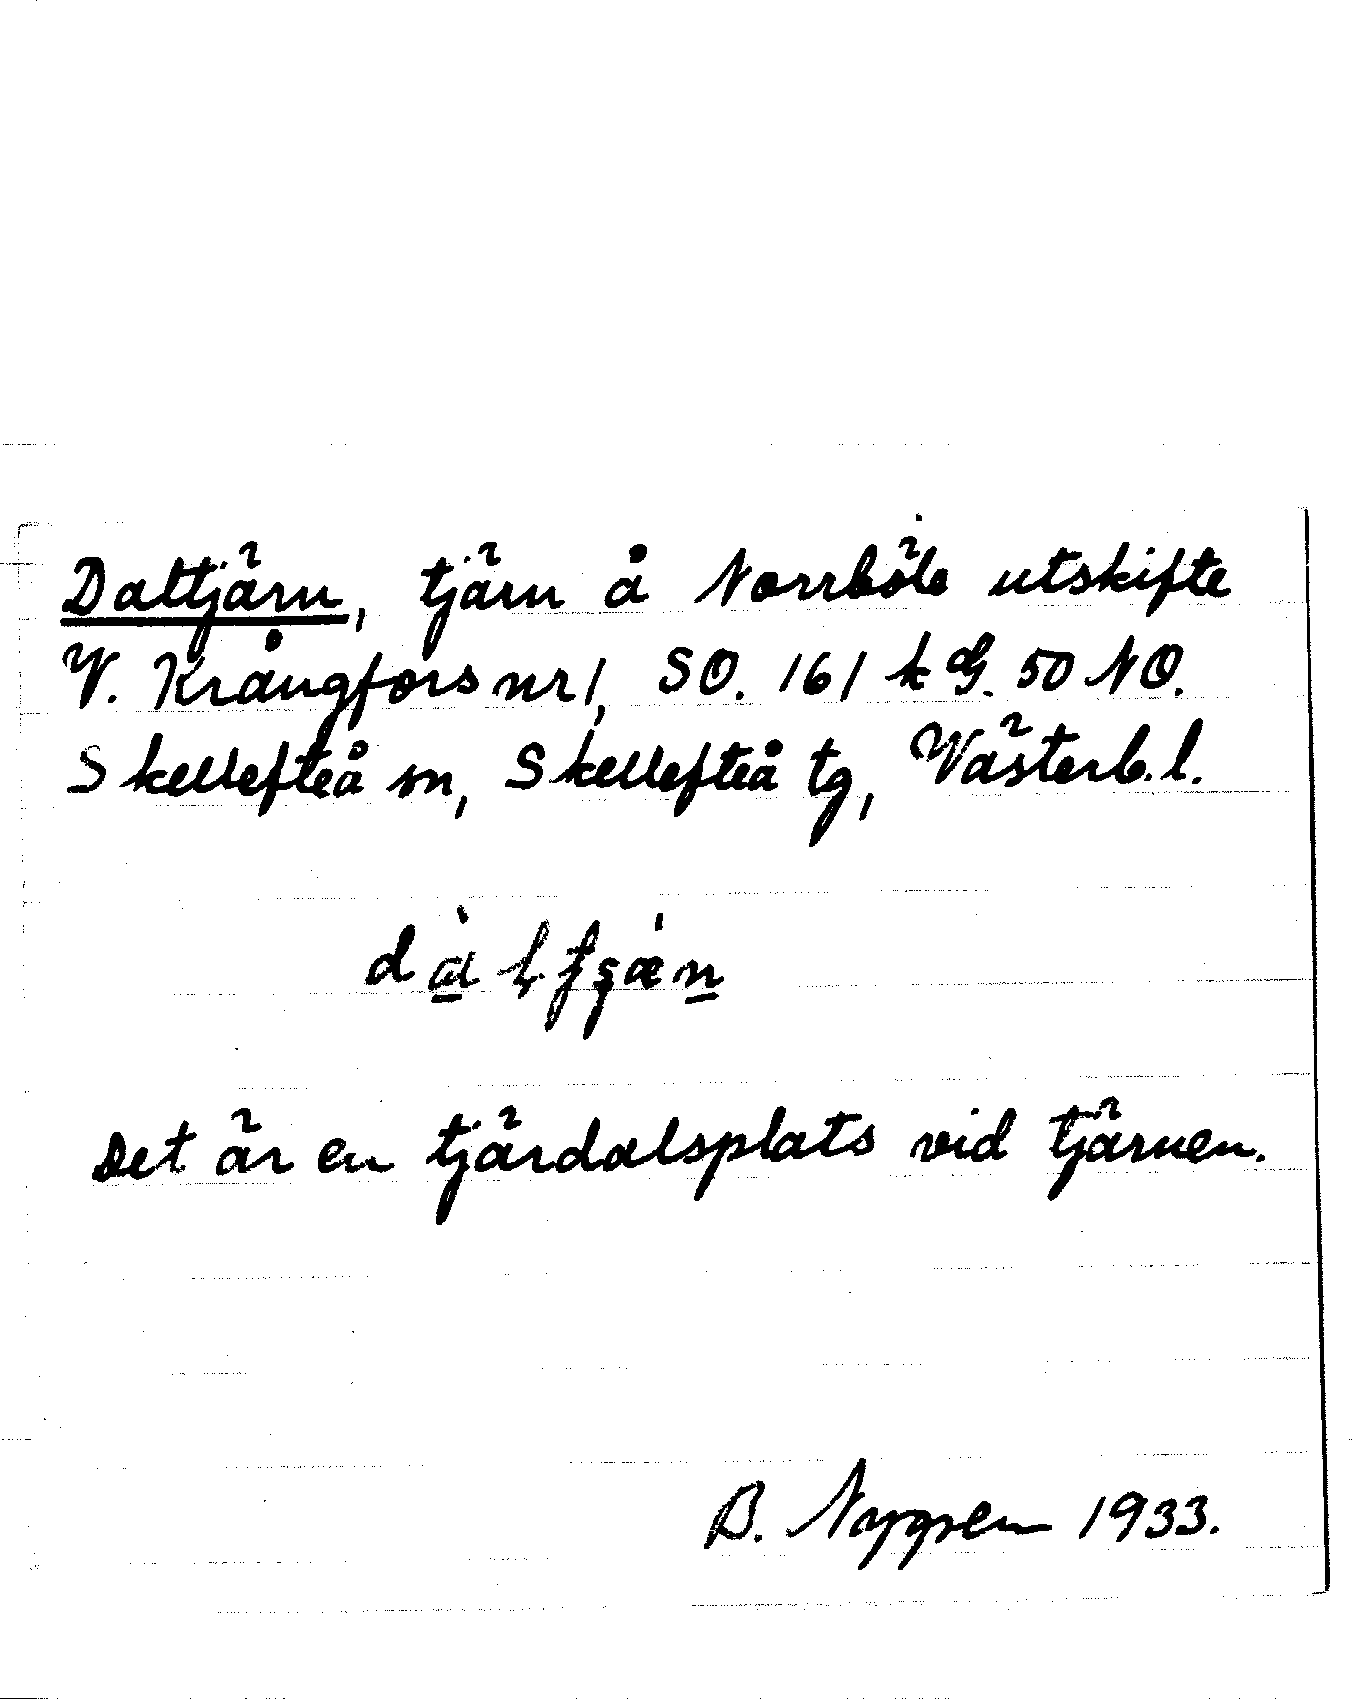 Daltjärn, tjärn å Norrböle utskifte
V. Krångfors nr 1, SO. 161 k G. 50 NO.
Skellefteå sn, Skellefteå tg, Västerb. l.
Det är en tjärdalsplats vid tjärnen.
B. Nygren 1933.